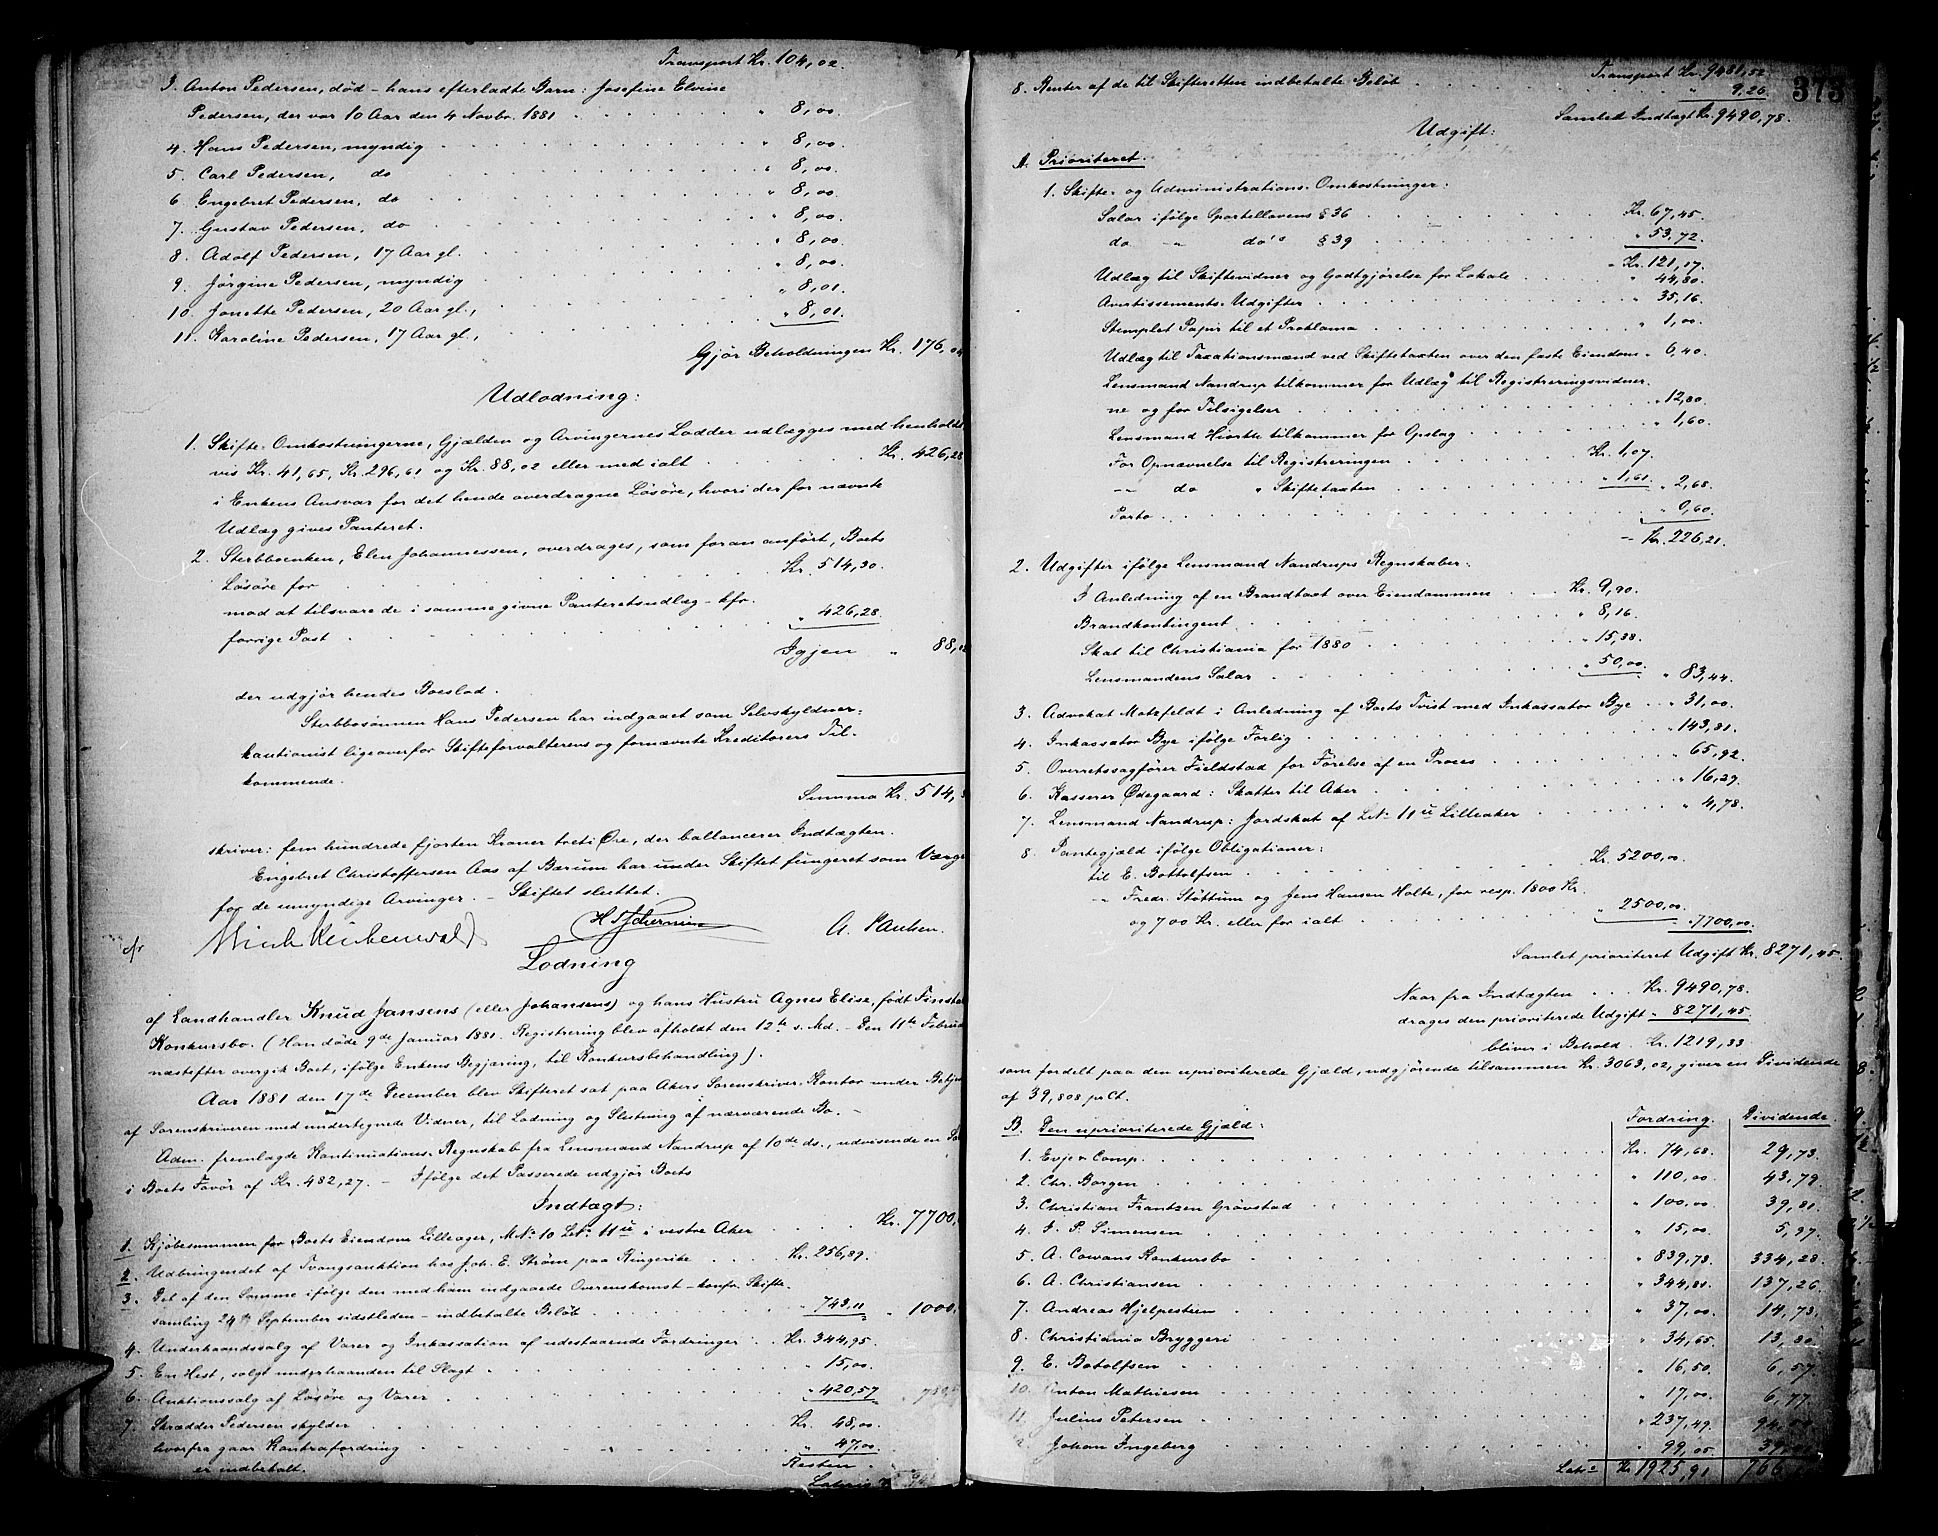 Transport Kr. 104,02.
3. Anton Pedersen, død - hans efterladte Barn: Josefine Elvine
Pedersen, der var 10 Aar den 4 Novbr. 1881 . . . . " 8,00.
4. Hans Pedersen, myndig . . . . " 8,00.
5. Carl Pedersen, do . . . . " 8,00.
6. Engebret Pedersen, do . . . . " 8,00.
7. Gustav Pedersen, do . . . . " 8,00.
8. Adolf Pedersen, 17 Aar gl. . . . . " 8,00.
9. Jørgine Pedersen, myndig . . . . " 8,00.
10. Jonette Pedersen, 20 Aar gl., . . . . " 8,01.
11. Karoline Pedersen, 17 Aar gl., . . . . " 8,01.
Gjør Beholdningen Kr. 176,04
Udlodning:
1. Skifte-Omkostningerne, Gjælden og Arvingernes Lodder udlægges med henholds
vis Kr. 41,65, Kr. 296,61 og Kr. 88,02 eller med ialt . . . Kr. 426,28
i Enkens Ansvar for det hende overdragne Løsøre, hvori der for nævnte
Udlæg gives Panteret.
2. Sterbboenken, Elen Johannessen, overdrages, som foran anført, Boets
Løsøre for . . . . Kr. 514,30.
mod at tilsvare de i samme givne Panteretsudlæg - kfr.
forrige Post . . . . " 426,28.
Igjen " 88,02
der udgjør hendes Boeslod.
Sterbbosønnen Hans Pedersen har indgaaet som Selvskyldner-
kautionist ligeoverfor Skifteforvalterens og fornævnte Kreditorers Til-
kommende.
Summa Kr. 514,3
skriver: fem hundrede fjorten Kroner treti Øre, der ballancerer Indtægten.
Engebret Christoffersen Aas af Bærum har under Skiftet fungeret som Værge
for de umyndige Arvinger. - Skiftet sluttet.
A. Paulsen.
Lodning
af Landhandler Knud Jansens (eller Johansens) og hans Hustru Agnes Elise, født Finstad
Konkursbo. (Han døde 9de Januar 1881. Registrering blev afholdt den 12te s. Md. - Den 11te Februar
næstefter overgik Boet, ifølge Enkens Begjæring, til Konkursbehandling).
Aar 1881 den 17de December blev Skifteret sat paa Akers Sorenskriver-Kontor under Betjen
af Sorenskriveren med undertegnede Vidner, til Lodning og Slutning af nærværende Bo. -
Adm. fremlagde Kontinuations-Regnskab fra Lensmand Nandrup af 10de ds., udvisende en Sal
i Boets Favør af Kr. 482,27. - Ifølge det Passerede udgjør Boets
Indtægt:
1. Kjøbesummen for Boets Eiendom Lilleager, M.No 10 Lit. 11u i vestre Aker . . . . Kr. 7700,
2. Udbringendet af Tvangsauktion hos Joh. E. Strøm paa Ringerike . . . Kr. 256,89.
3. Del af den Summa ifølge den med ham indgaaede Overenskomst - konfr. Skifte-
samling 24de September sidstleden - indbetalte Beløb . . . . " 743,11 " 1000,
4. Underhaandssalg af Varer og Inkassation af udestaaende Fordringer . . Kr. 344,95.
5. En Hest, solgt underhaanden til Slagt . . . . " 15,00.
6. Auktionssalg af Løsøre og Varer . . . . " 420,57
7. Skrædder Pedersen skylder . . . . Kr. 48,00.
hvorfra gaar Kontrafordring . . . . " 47,00.
Resten
er indbetalt.
Transport Kr. 9481,52
8. Renter af de til Skifteretten indbetalte Beløb . . . . " 9,26
373
Samlet Indtægt Kr. 9490,78.
Udgift:
A. Prioriteret.
1. Skifte- og Administrations-Omkostninger:
Salær ifølge Sportellovens § 36 . . . . Kr. 67,45.
do - " - do's § 39 . . . . " 53,72.
" Kr. 121,17.
Udlæg til Skiftevidner og Godtgjørelse for Lokale . . . . " 44,80.
Avertissements-Udgifter . . . . " 35,16.
Stemplet Papir til et Proklama . . . . " 1,00.
Udlæg til Taxationsmænd ved Skiftetaxten over den faste Eiendom " 6,40.
Lensmand Nandrup tilkommer for Udlæg til Registreringsvidner-
ne og for Tilsigelser . . . . " 12,80.
Lensmand Hiorth tilkommer for Opslag . . . . " 1,60.
For Opnævnelse til Registreringen . . . . Kr. 1,07.
- " - do " Skiftetaxten . . . . " 1,61 " 2,68.
Porto . . . . " 0,60.
- Kr. 226,21.
2. Udgifter ifølge Lensmand Nandrups Regnskaber:
I Anledning af en Brandtaxt over Eiendommen . . . Kr. 9,90.
Brandkontingent . . . . " 8,16.
Skat til Christiania for 1880 . . . . " 15,38.
Lensmandens Salær . . . . " 50,00. " 83,44.
3. Advokat Motzfeldt i Anledning af Boets Tvist med Inkassator Bye . . " 31,00.
4. Inkassator Bye ifølge Forlig . . . . " 143,81.
5. Overretssagfører Fieldstad for Førelse af en Proces . . . . " 65,92.
6. Kasserer Ødegaard: Skatter til Aker . . . . " 16,29.
7. Lensmand Nandrup: Jordskat af Lit. 11u Lilleaker . . . . " 4,78.
8. Pantegjæld ifølge Obligationer:
til E. Bottolfsen . . . . Kr. 5200,00.
- " Fredr. Støttum og Jens Hansen Holte, for resp. 1800 Kr.
og 700 Kr. eller for ialt . . . . " 2500,00. " 7700,00.
Samlet prioriteret Udgift Kr. 8271,45.
Naar fra Indtægten . . . Kr. 9490,78.
drages den prioriterede Udgift " 8271,45.
bliver i Behold . Kr. 1219,33
som fordelt paa den uprioriterede Gjæld, udgjørende tilsammen Kr. 3063,02, giver en Dividende
af 39,808 prCt.
B. Den uprioriterede Gjæld: Fordring. Dividende.
1. Evje & Comp. . . . . Kr. 74,68. 29,73.
2. Chr. Borgen . . . . " 110,00. 43,79.
3. Christian Frantzen Grøvstad . . . . " 100,00. 39,81.
4. J. P. Simensen . . . . " 15,00. 5,97.
5. A. Cowans Konkursbo . . . . " 839,73. 334,28.
6. A. Christiansen . . . . " 344,81. 137,26.
7. Andreas Hjelpesteen . . . . " 37,00. 14,73.
8. Christiania Bryggeri . . . . " 34,65. 13,80.
9. E. Botolfsen . . . . " 16,50. 6,57.
10. Anton Mathiesen . . . . " 17,00. 6,77.
11. Julius Petersen . . . . " 237,49.
Johan Ingeberg . . . . " 99,05
Kr. 1925,91